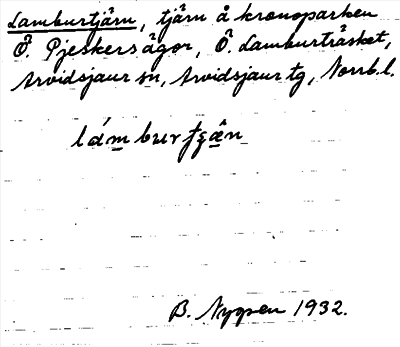 Lamburtjärn, tjärn å kronoparken
Ö. Pjeskers ägor, Ö. Lamburträsket,
Arvidsjaur sn, Arvidsjaur tg, Norrb.l.
B. Nygren 1932.